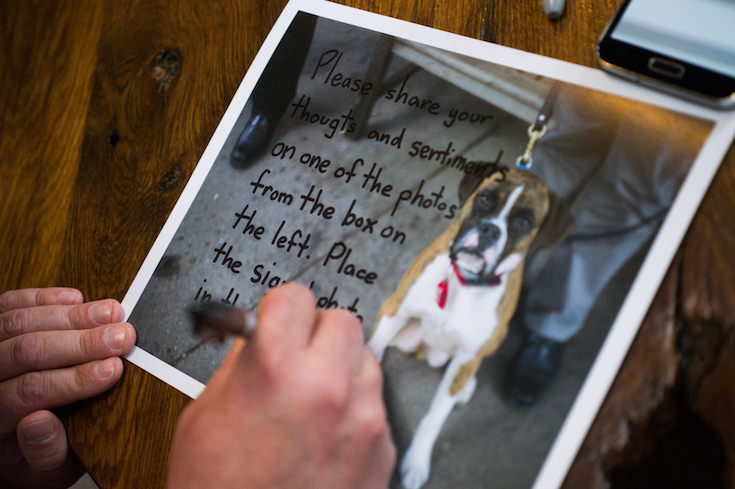 Please share your
thougts and sentiments
on one of the photos
from the box on
the left. Place
the
in